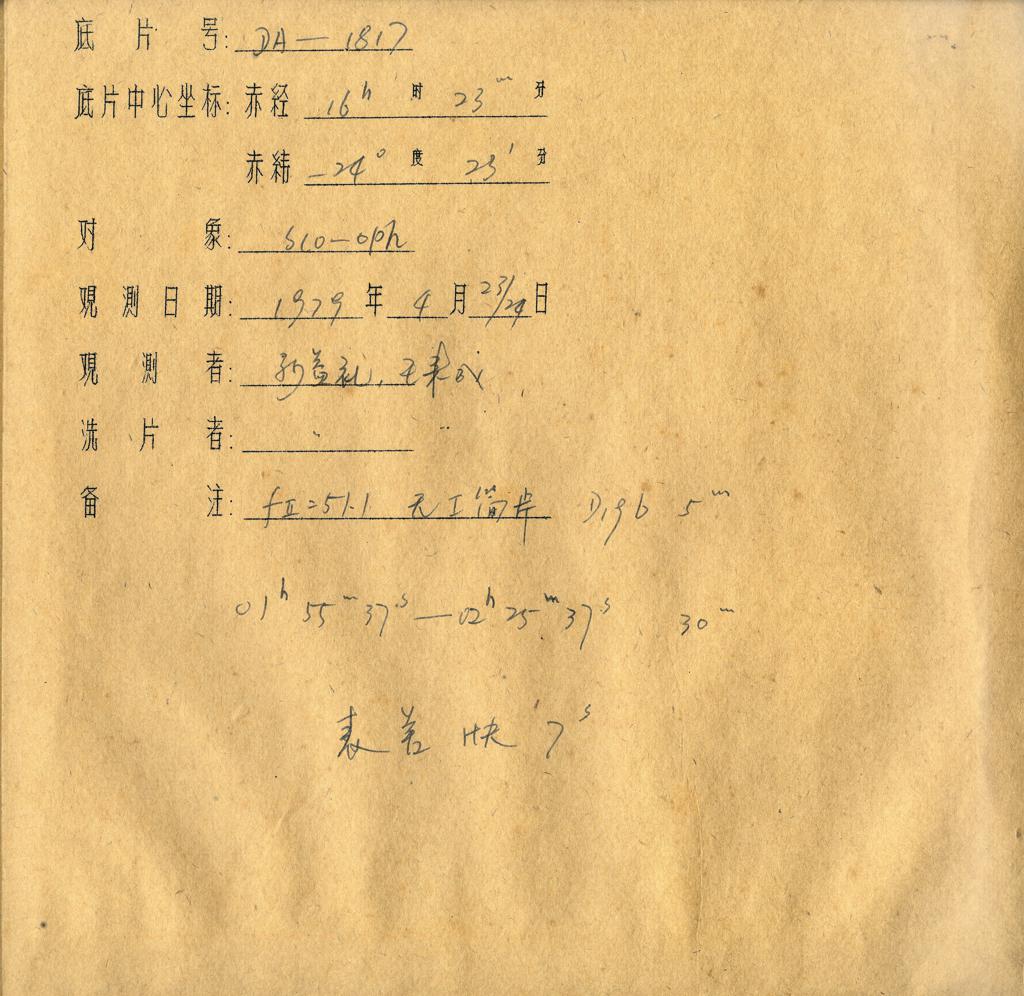 底片号: DA—1817
底片中心坐标: 赤经 16h 时 23m 分
赤纬 -24° 度 23' 分
对象: Sco—oph
观测日期: 1979 年 4 月 23/24 日
观测者: 孙益礼, 王来成
洗片者:
备注: fII=51.1 天工简片 5m
01h 55m 37s — 02h 25m 37s 30m
表差 快 7s